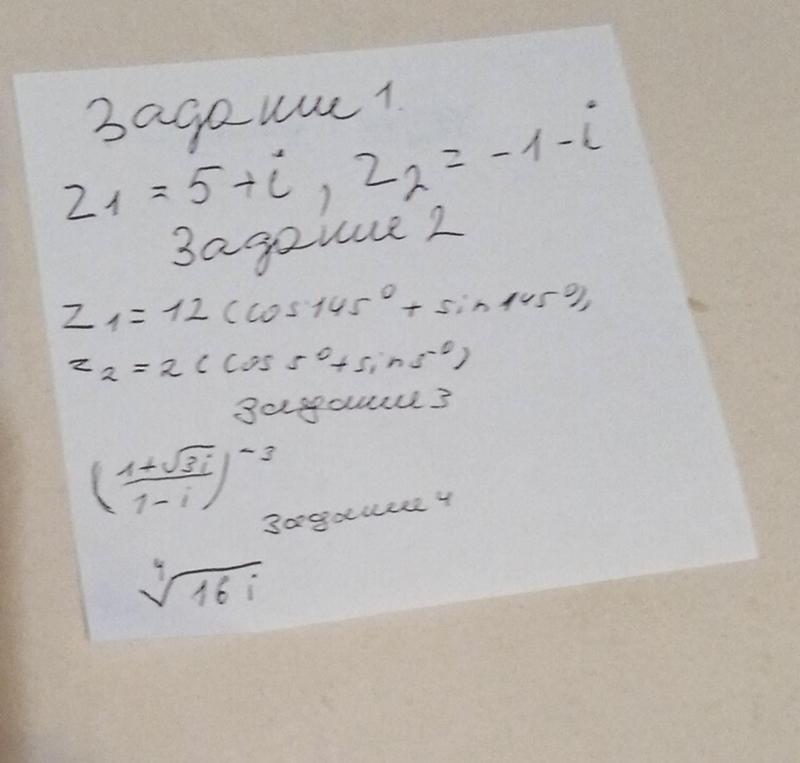 Задание 1.
z1 = 5+i, z2 = -1-i
Задание 2
z1 = 12 (cos 145° + sin 145°),
z2 = 2 (cos 5° + sin 5°)
Задание 3
((1+√3i)/(1-i))^-3
Задание 4
⁴√16i